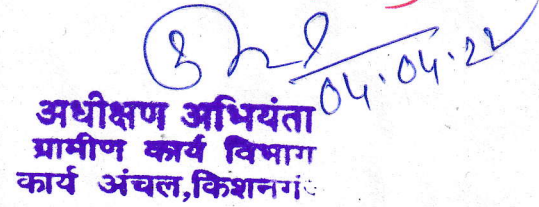 04.04.22
अधीक्षण अभियंता
ग्रामीण कार्य विभाग
कार्य अंचल,किशनगं